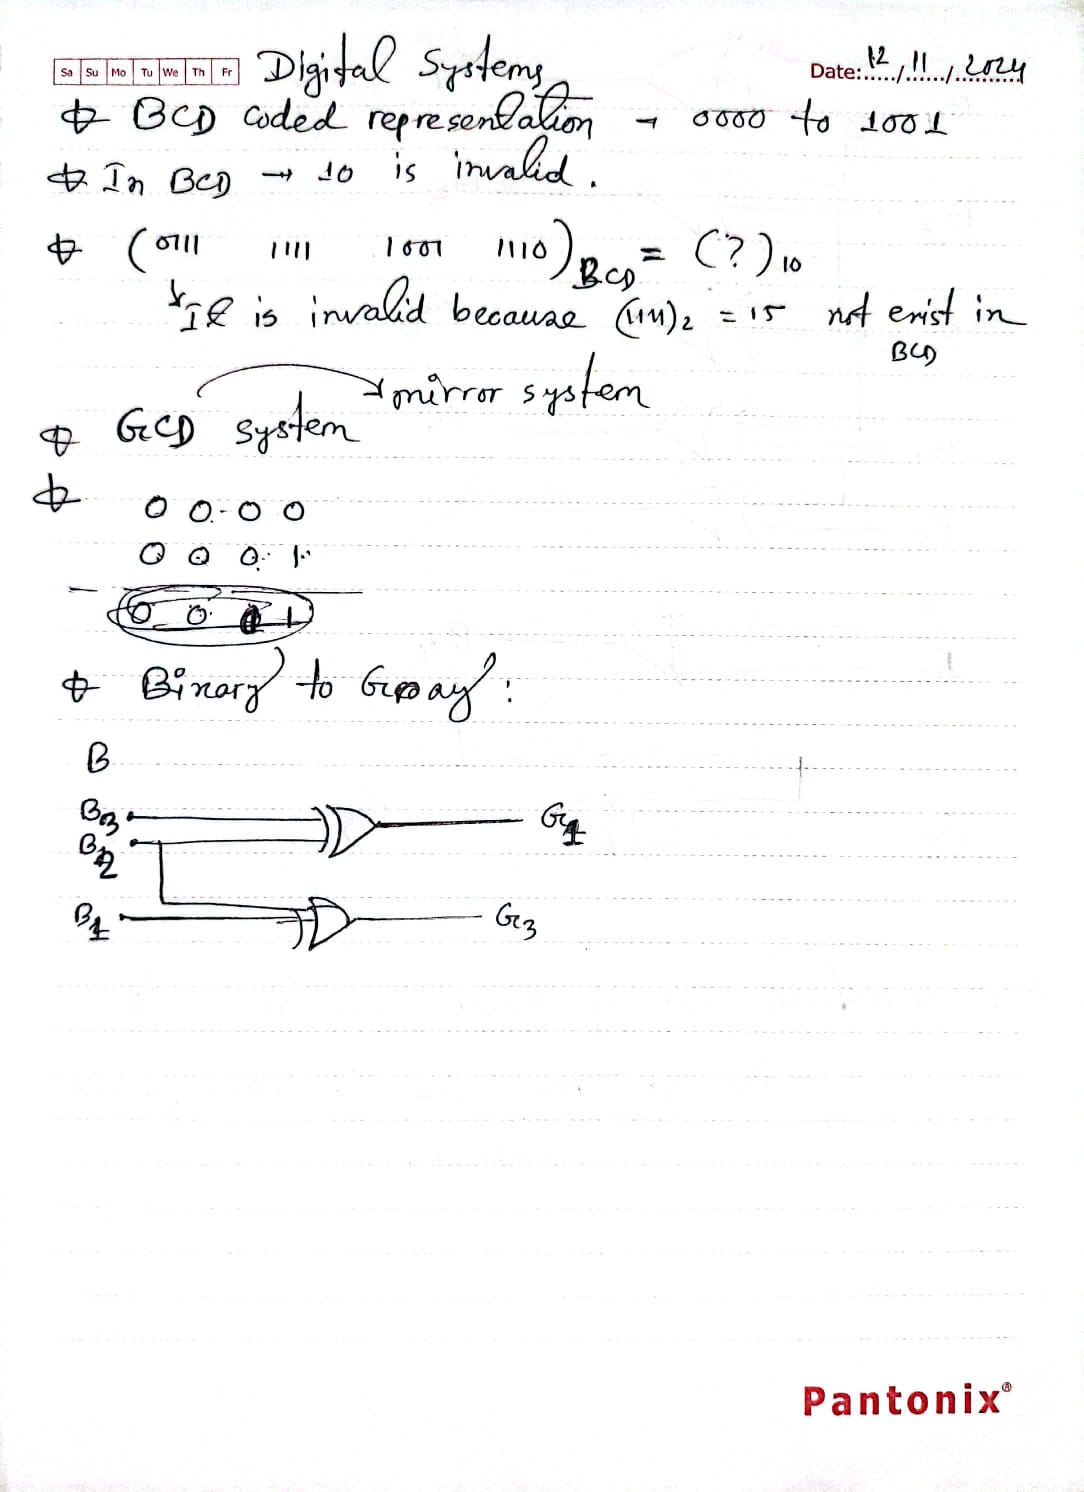 Sa Su Mo Tu We Th Fr Digital Systems Date: 12/11/2024
BCD coded representation → 0000 to 1001
In BCD → 10 is invalid.
(0111 1111 1001 1110)BCD = (?)10
It is invalid because (1111)2 = 15 not exist in
BCD
→ mirror system
GCD system
0 0 0 0
0 0 0 1
0 0 1
Binary to Gray:
B
B3 G1
B2
B1 G3
Pantonix®